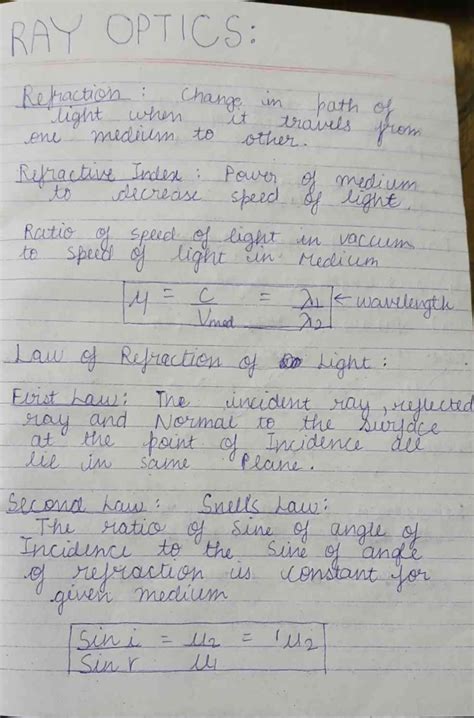 RAY OPTICS:
Refraction : Change in path of
light when it travels from
one medium to other.
Refractive Index : Power of medium
to decrease speed of light.
Ratio of speed of light in vaccum
to speed of light in Medium
μ = C/Vmed = λ1/λ2 ← wavelength
Law of Refraction of Light :
First Law: The incident ray, reflected
ray and Normal to the Surface
at the point of Incidence all
lie in same Plane.
Second Law : Snell's Law:
The ratio of Sine of angle of
Incidence to the Sine of angle
of refraction is constant for
given medium
Sin i/Sin r = μ2/μ1 = ¹μ2